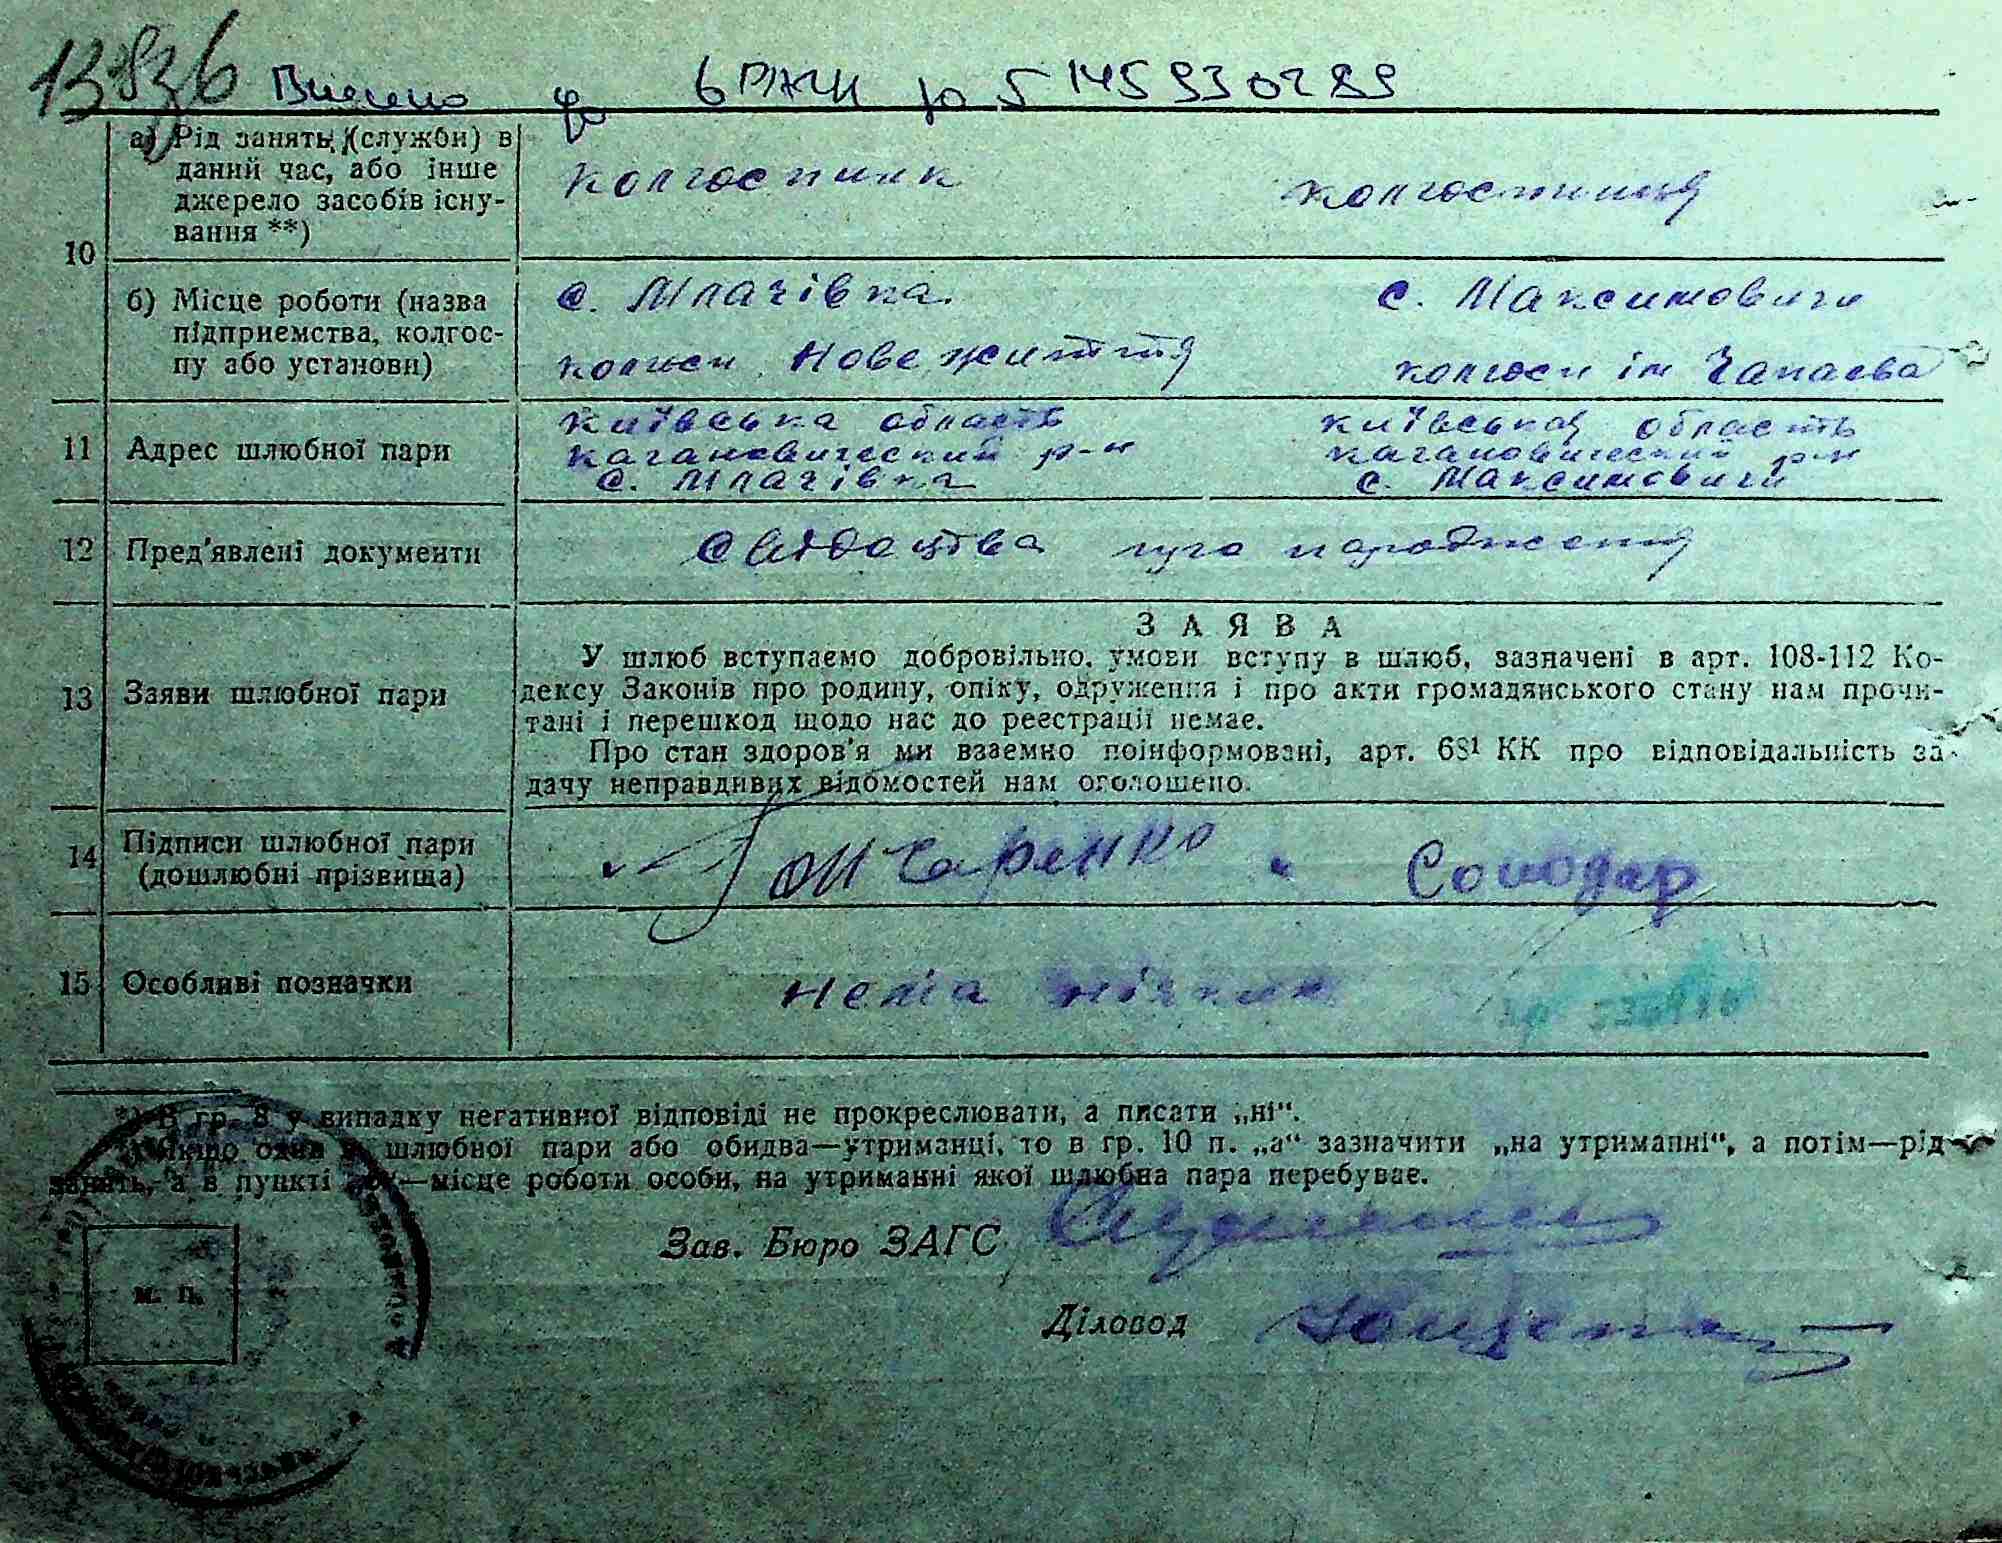 Внесено до ДРАЦГ за 5 145930299
а) Рід занять (служби) в
даний час, або інше
джерело засобів існу-
вання **)
колгоспник
колгоспниця
10
б) Місце роботи (назва
підприємства, колгос-
пу або установи)
с. Млачівка
с. Максимовичи
колгосп Нове життя
колгосп ім Чапаєва
11
Адрес шлюбної пари
Київська область
Кагановический р-н
с. Млачівка
Київська область
Кагановический р-н
с. Максимовичи
12
Пред'явлені документи
Свідоцтва про народження
13
Заяви шлюбної пари
ЗАЯВА
У шлюб вступаємо добровільно, умови вступу в шлюб, зазначені в арт. 108-112 Ко-
дексу Законів про родину, опіку, одруження і про акти громадянського стану нам прочи-
тані і перешкод щодо нас до реєстрації немає.
Про стан здоров'я ми взаємно поінформовані, арт. 68¹ КК про відповідальність за
дачу неправдивих відомостей нам оголошено.
14
Підписи шлюбної пари
(дошлюбні прізвища)
Гончаренко
Солодар
15
Особливі позначки
нема
*) В гр. 8 у випадку негативної відповіді не прокреслювати, а писати „ні“.
Якщо один з шлюбної пари або обидва—утриманці, то в гр. 10 п. „а“ зазначити „на утриманні“, а потім—рід
занять, а в пункті „б“—місце роботи особи, на утриманні якої шлюбна пара перебуває.
Зав. Бюро ЗАГС
М. П.
Діловод